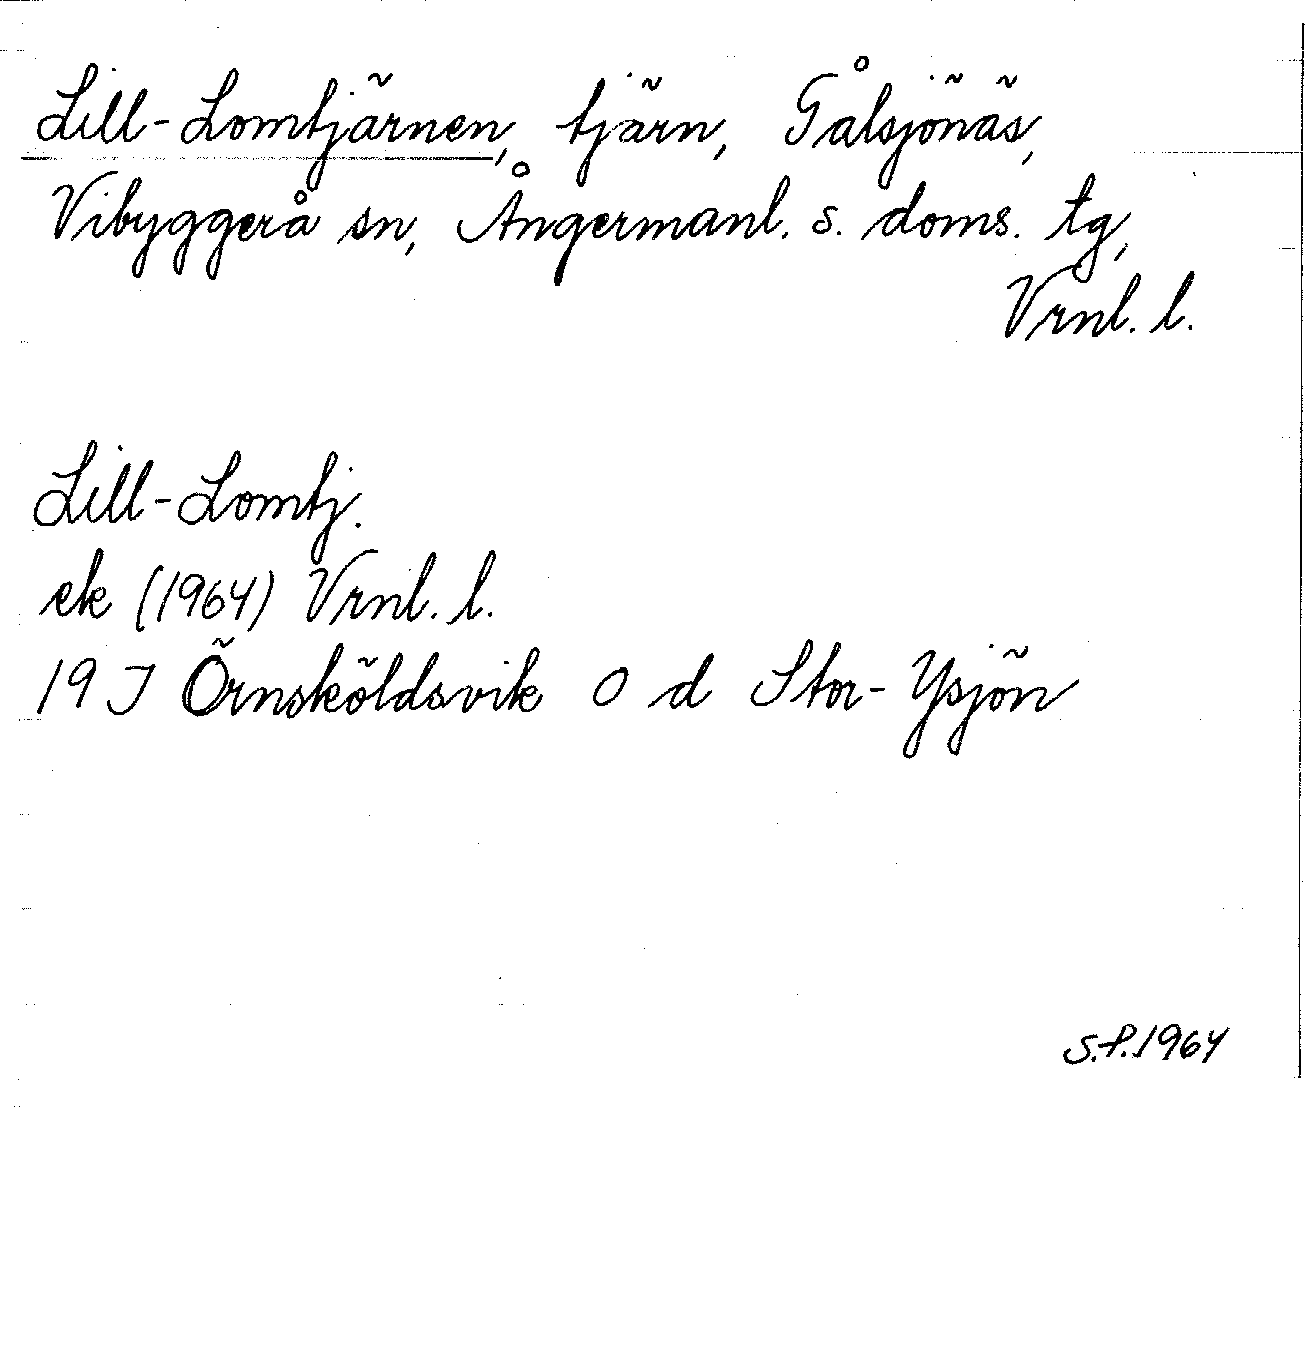 Lill-Lomtjärnen, tjärn, Gålsjönäs,
Vibyggerå sn, Ångermanl. s. doms. tg,
Vrnl. l.
Lill-Lomtj.
ek (1964) Vrnl. l.
19 J Örnsköldsvik O d Stor-Ysjön
S.P.1964